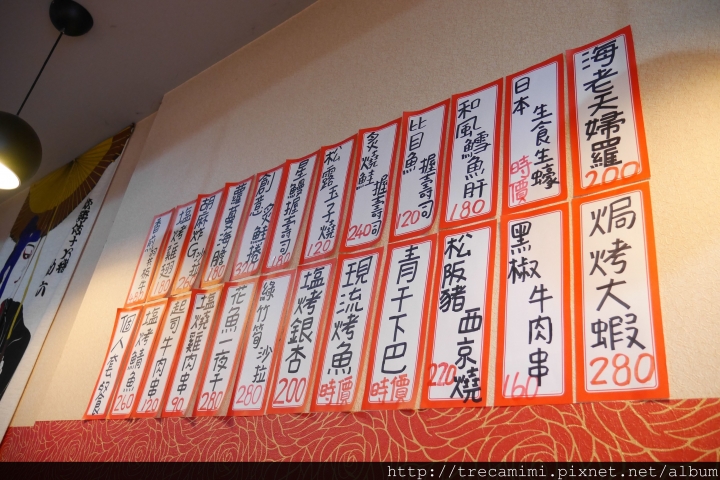 海老天婦羅
200
日本 生食生蠔
時價
和風鱈魚肝
180
比目魚 握壽司
120
炙燒鮭 握壽司
240
松露玉子燒
120
星鰻握壽司
創意 炙鮭捲
320
焗烤大蝦
280
黑椒 牛肉串
160
松阪豬 西京燒
220
青干下巴
時價
現流烤魚
時價
塩烤銀杏
200
綠竹筍沙拉
280
花魚一夜干
280
塩燒雞肉串
90
牛肉串
120
塩烤鯖魚
260
個人套餐
http://trecamimi.pixnet.net/album